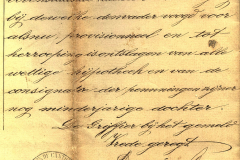 bij dewelke den vader wordt voor
alsnu provisioneel en tot
herroeping is ontslagen van alle
wettige hijpotheek en van de
consignatie der penningen zijner
nog minderjerige dochter.
De Griffier bij het gemeld
Vrede geregt